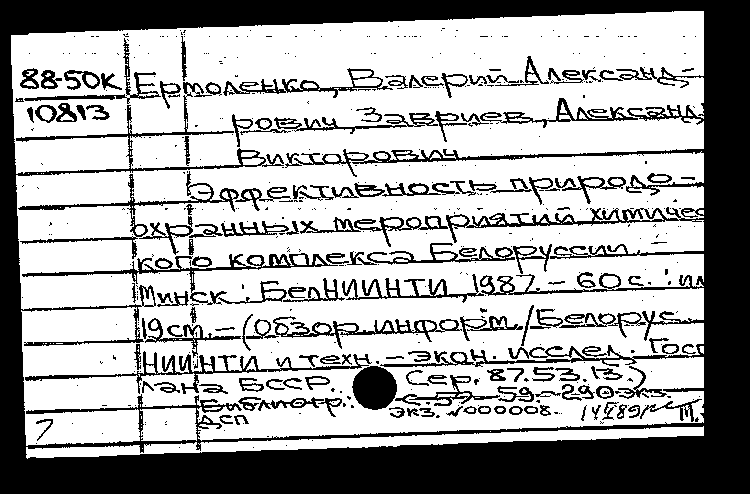 88-50К Ермоленко, Валерий Александ-
10813 рович, Завриев, Александ
Викторович
Эффективность природо-
охранных мероприятий химичес
кого комплекса Белоруссии. -
Минск: БелНИИНТИ, 1987. - 60 с. : ил
19 см. - (Обзор. информ. / Белорус.
НИИНТИ и техн. - экон. исслед. Госп
лана БССР. Сер. 87.53.13.)
Библиогр.: с. 57-59. - 290 экз.
ДСП экз. №000008.
7